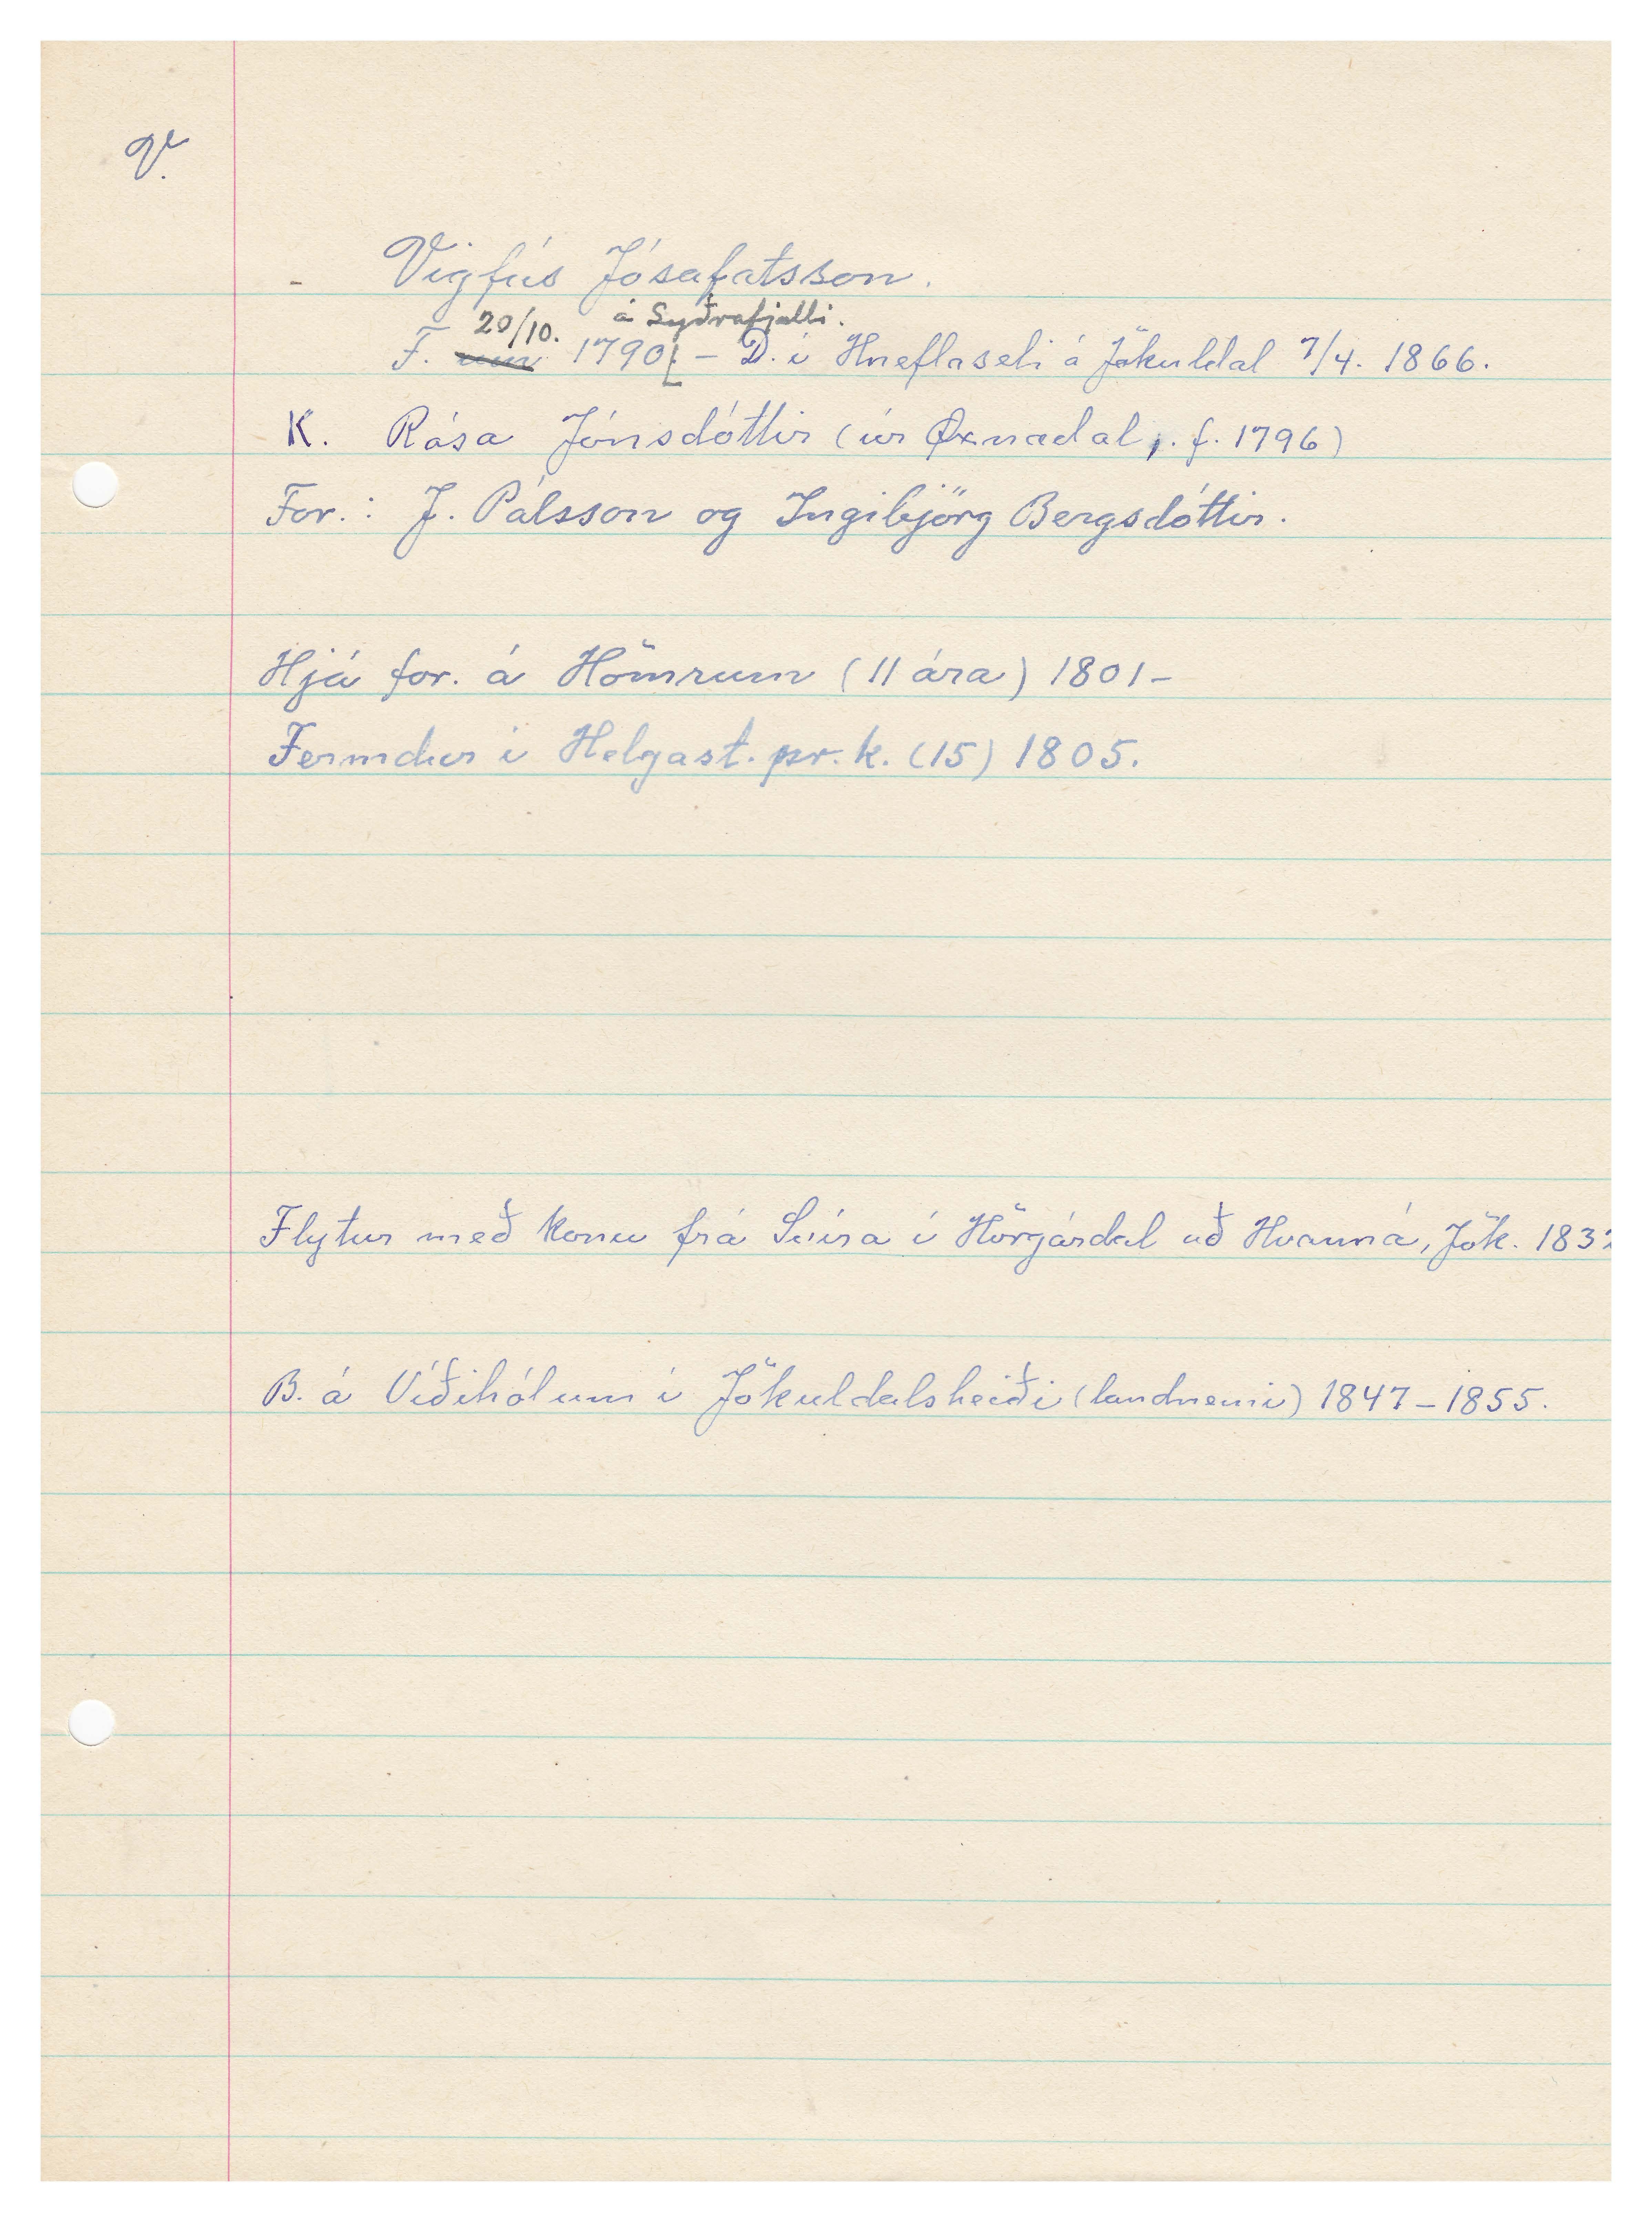 V.
- Vigfús Jósafatsson.
20/10. á Syðrafjalli.
F. 1790 - D. í Hneflaseli á Jökuldal 7/4. 1866.
K. Rósa Jónsdóttir (úr Øxnadal, f. 1796)
For.: J. Pálsson og Ingibjörg Bergsdóttir.
Hjá for. á Hömrum (11 ára) 1801-
Fermdur í Helgast. pr.k. (15) 1805.
Flytur með konu frá Skúra í Hörgárdal að Hvanná, Jök. 1832
B. á Víðihólum í Jökuldalsheiði (landnemi) 1847-1855.